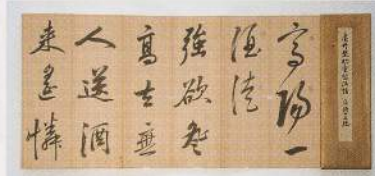 高陽一
酒徒
強欲登
高去無
人送酒
来遙憐